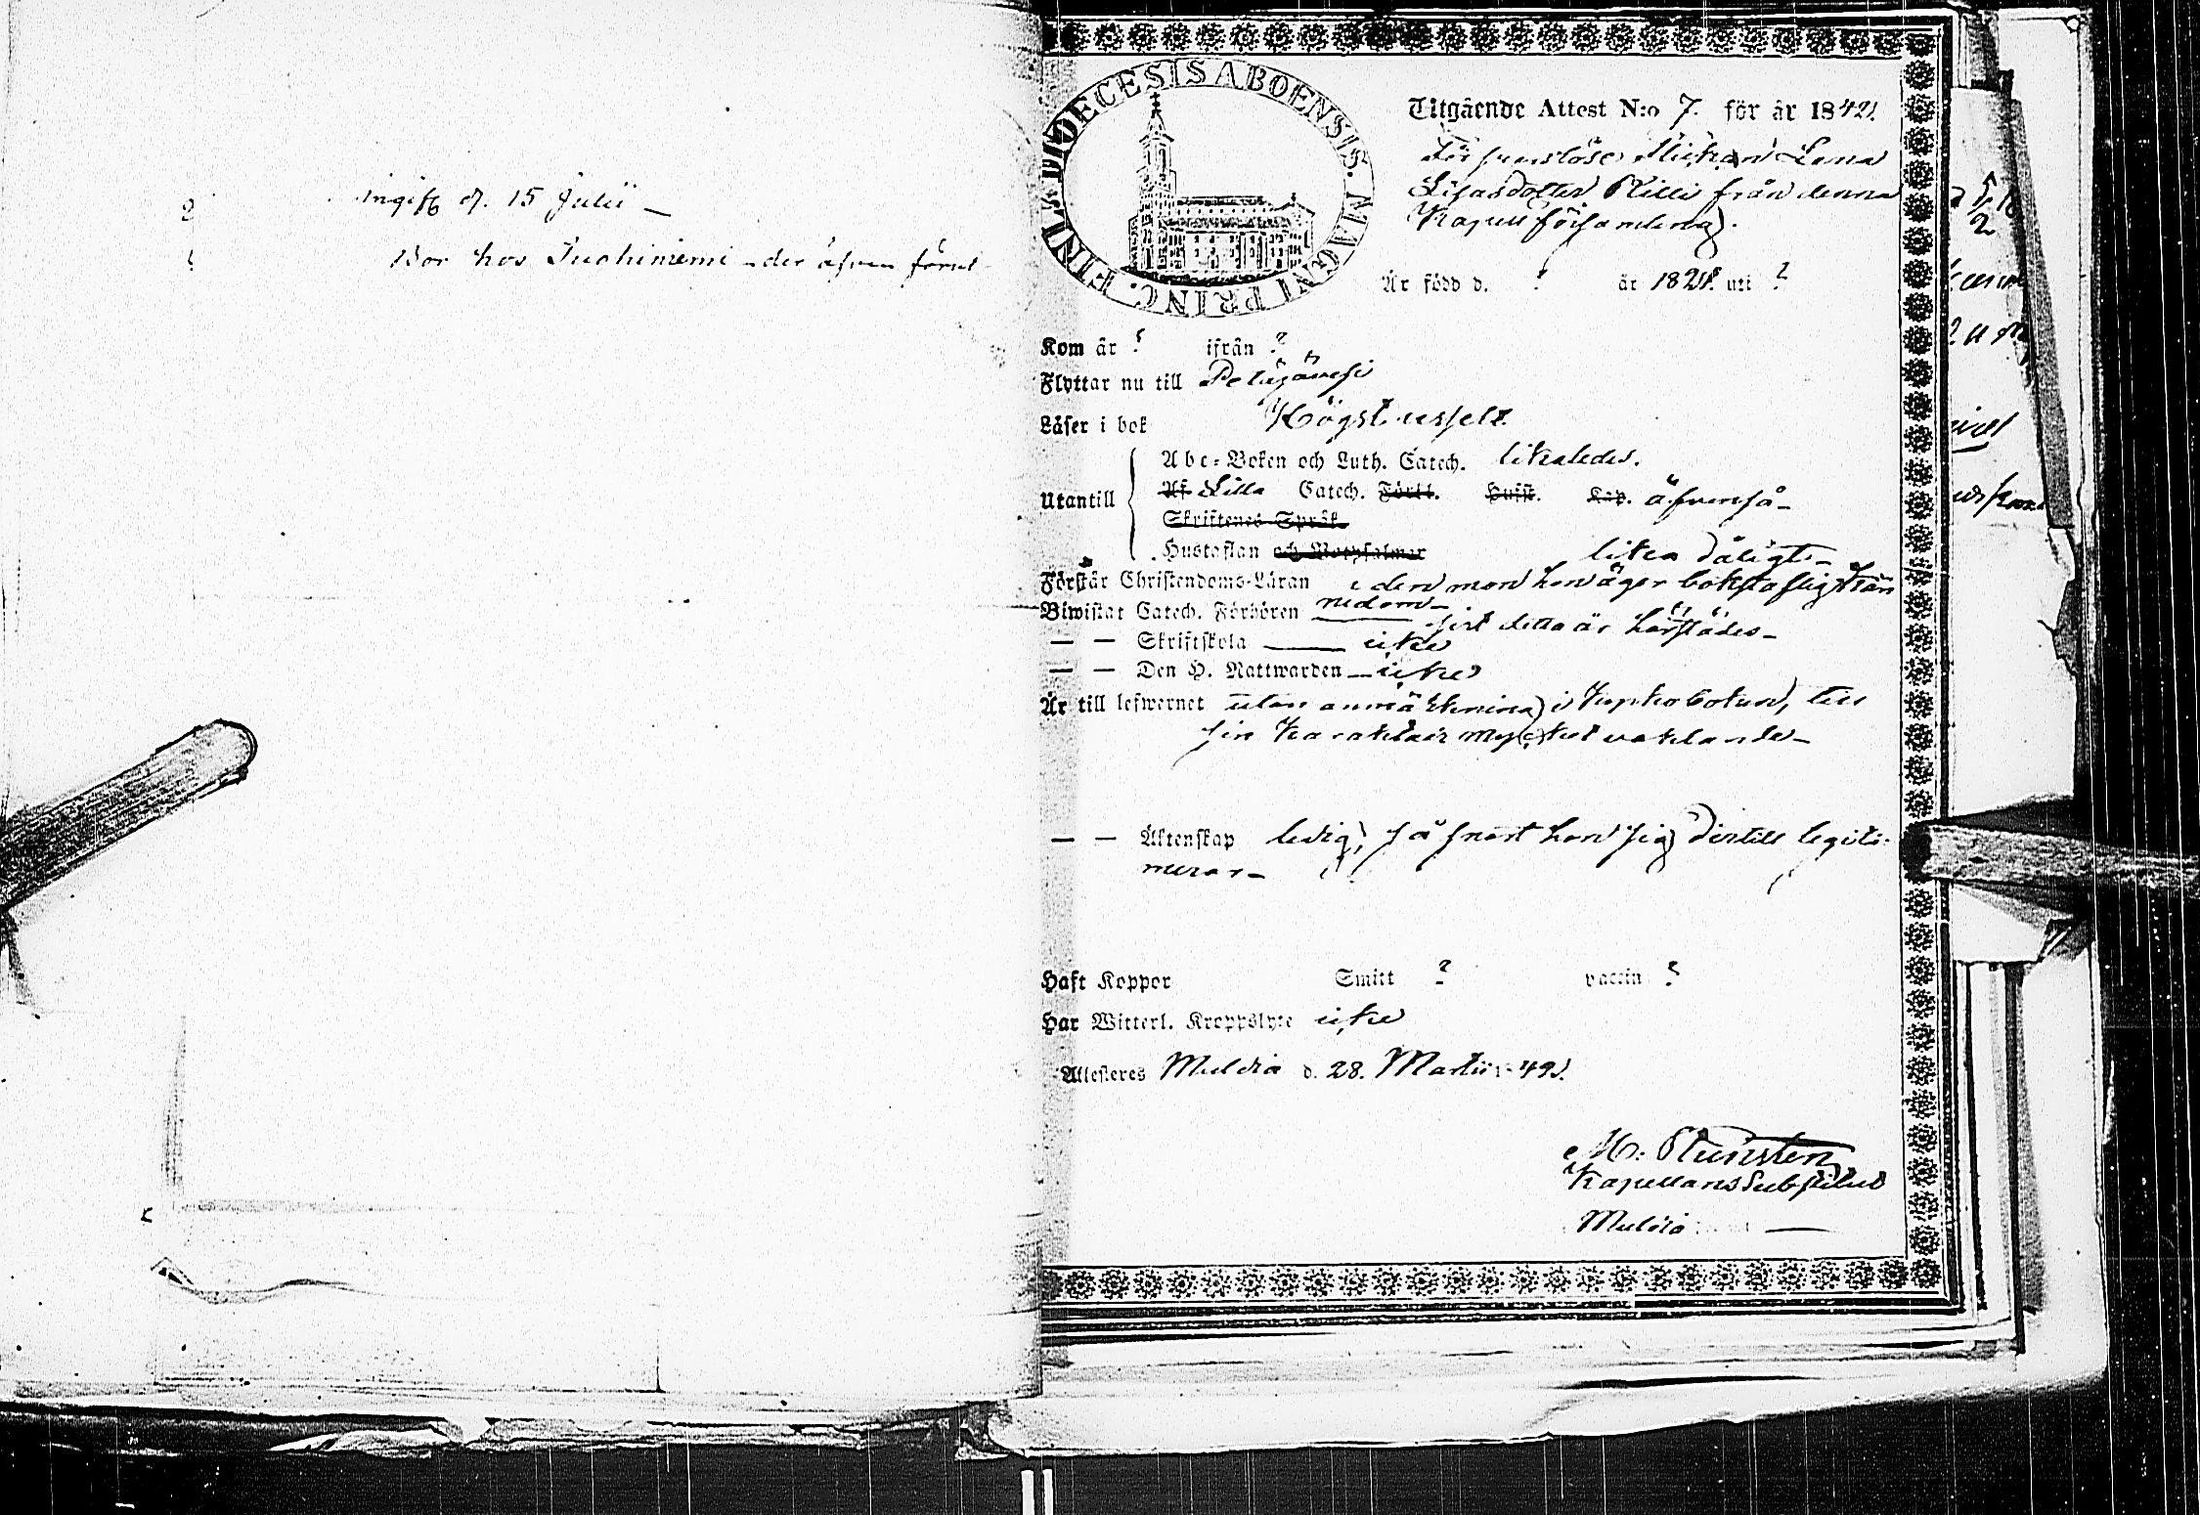 ingift d. 15 Julii —
Bor hos Juohiniemi - der äfven förut
DIOECESIS ABOENSIS. MAGNI PRINC. FINL.
Utgående Attest N:o 7. för år 1842.
För Lena
Lisasdotter från denna
Kapell församling.
Är född d. ? år 1821. uti ?
Kom år ? ifrån ?
Flyttar nu till Petäjävesi
Läser i bok Högst uselt.
Utantill
Abc-Boken och Luth. Catech. likaledes.
Af Lilla Catech. Förkl. Husst. Kap. äfvenså —
Skriftenes Språk.
Hustaflan och Botpsalmer lika dåligt —
Förstår Christendoms-Läran i den mon hon äger bokstaflig kän
nedom —
Biwistat Catech. Förhören sist detta år härstädes —
— — Skriftskola — icke
— — Den H. Nattwarden — icke
Är till lefwernet utan anmärkning i Kyrkoboken, till
sin karaktair mycket vaklande —
— — Äktenskap ledig, så snart hon sig dertill legiti-
merar —
Haft Koppor Smitt ? vaccin ?
Har Witterl. Kroppslyte icke
Attesteres Muldia d. 28. Martii 1842.
M: Runsten
Kapellans Substitut
Muldia —